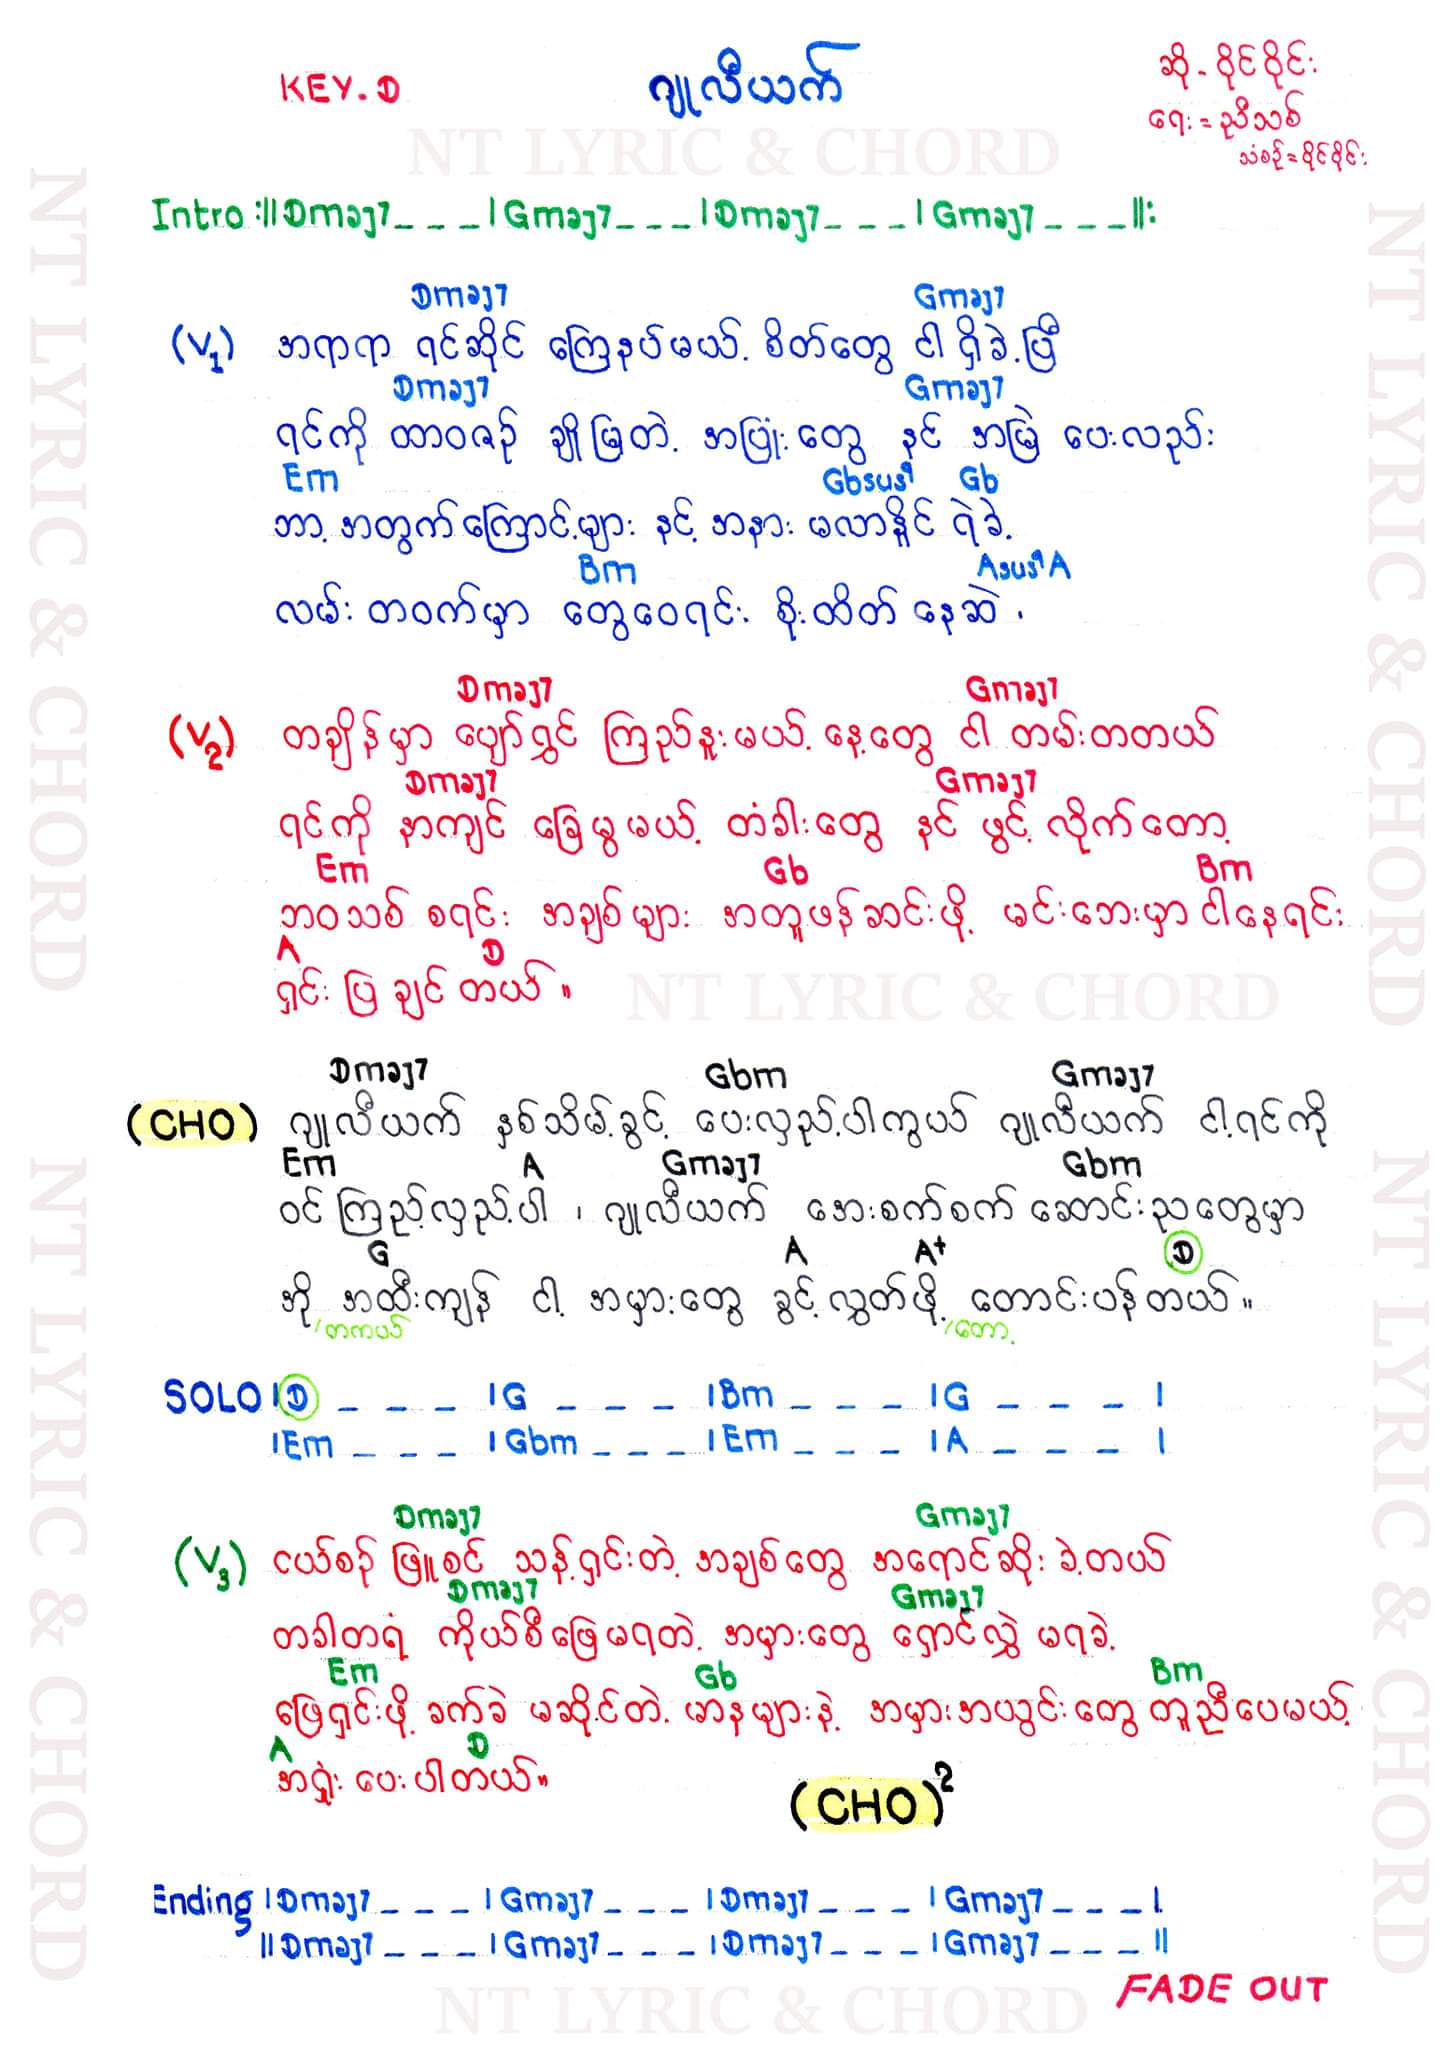 KEY-D
ဂျူလီယက်
ဆို - ဝိုင်ဝိုင်း
ရေး = ညီသစ်
သံစဉ် = ဝိုင်ဝိုင်း
NT LYRIC & CHORD
Intro :||Dmaj7_ _ _|Gmaj7_ _ _|Dmaj7_ _ _|Gmaj7_ _ _||:
Dmaj7 Gmaj7
(V1) အရာရာ ရင်ဆိုင် ကြေနပ်မယ့် စိတ်တွေ ငါ ရှိခဲ့ပြီ
Dmaj7 Gmaj7
ရင်ကို ထာဝစဉ် ချိုမြတဲ့ အပြုံးတွေ နင် အမြဲ ပေးလည်း
Em Gbsus4 Gb
ဘာ့အတွက်ကြောင့်များ နင့် အနား မလာနိူင် ရဲခဲ့
Bm Asus4 A
လမ်း တဝက်မှာ တွေဝေရင်း စိုးထိတ် နေဆဲ ၊
Dmaj7 Gmaj7
(V2) တချိန်မှာ ပျော်ရွှင် ကြည်နူးမယ့် နေ့တွေ ငါ တမ်းတတယ်
Dmaj7 Gmaj7
ရင်ကို နာကျင် ခြေမွမယ့် တံခါးတွေ နင် ဖွင့် လိုက်တော့
Em Gb Bm
ဘဝသစ် စရင်း အချစ်များ အတူဖန်ဆင်းဖို့ မင်းဘေးမှာ ငါနေရင်း
A D
ရှင်း ပြ ချင် တယ် ။
NT LYRIC & CHORD
Dmaj7 Gbm Gmaj7
(CHO) ဂျူလီယက် နှစ်သိမ့်ခွင့် ပေးလှည့်ပါကွယ် ဂျူလီယက် ငါ့ရင်ကို
Em A Gmaj7 Gbm
ဝင်ကြည့်လှည့်ပါ ၊ ဂျူလီယက် အေးစက်စက် ဆောင်းညတွေမှာ
G A A+ D
ဘို အထီးကျန် ငါ့ အမှားတွေ ခွင့်လွှတ်ဖို့ တောင်းပန်တယ် ။
/တကယ် /တော့
SOLO |D _ _ _ |G _ _ _ |Bm _ _ _ |G _ _ _ |
|Em _ _ _ |Gbm _ _ _ |Em _ _ _ |A _ _ _ |
Dmaj7 Gmaj7
(V3) ငယ်စဉ် ဖြူစင် သန့်ရှင်းတဲ့ အချစ်တွေ အရောင်ဆိုး ခဲ့တယ်
Dmaj7 Gmaj7
တခါတရံ ကိုယ်စီဖြေမရတဲ့ အမှားတွေ ရှောင်လွှဲ မရခဲ့
Em Gb Bm
ဖြေရှင်းဖို့ ခက်ခဲ မဆိုင်တဲ့ မာနများနဲ့ အမှားအယွင်းတွေ တူညီပေမယ့်
A D
အရှုံး ပေးပါတယ်။
(CHO)2
Ending |Dmaj7 _ _ _ |Gmaj7 _ _ _ |Dmaj7 _ _ _ |Gmaj7 _ _ _ |
||Dmaj7 _ _ _ |Gmaj7 _ _ _ |Dmaj7 _ _ _ |Gmaj7 _ _ _ ||
FADE OUT
NT LYRIC & CHORD
NT LYRIC & CHORD
NT LYRIC & CHORD
NT LYRIC & CHORD
NT LYRIC & CHORD